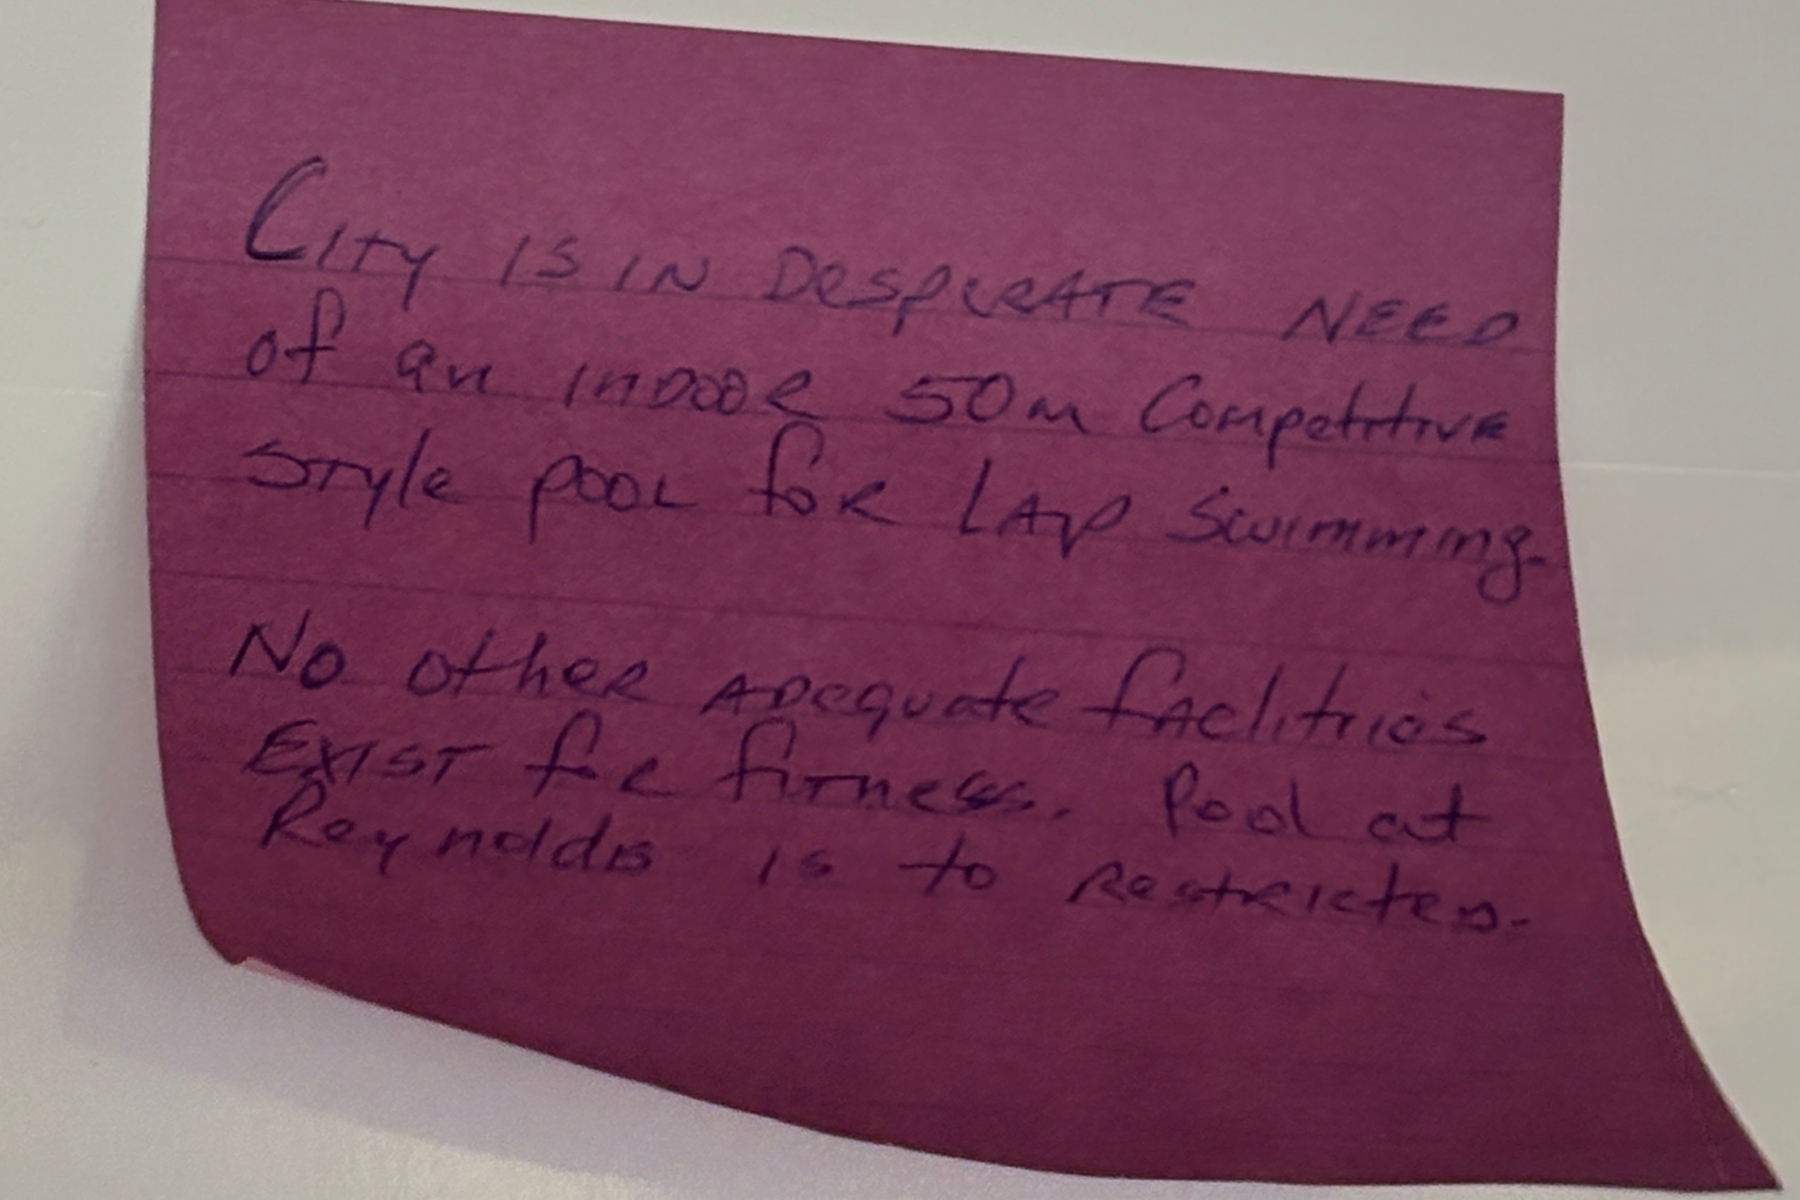 City is in Desperate NEED
of an indoor 50m Competitive
Style pool for LAP Swimming.
No other ADequate facilities
Exist for fitness. Pool at
Reynolds is to Restricted.